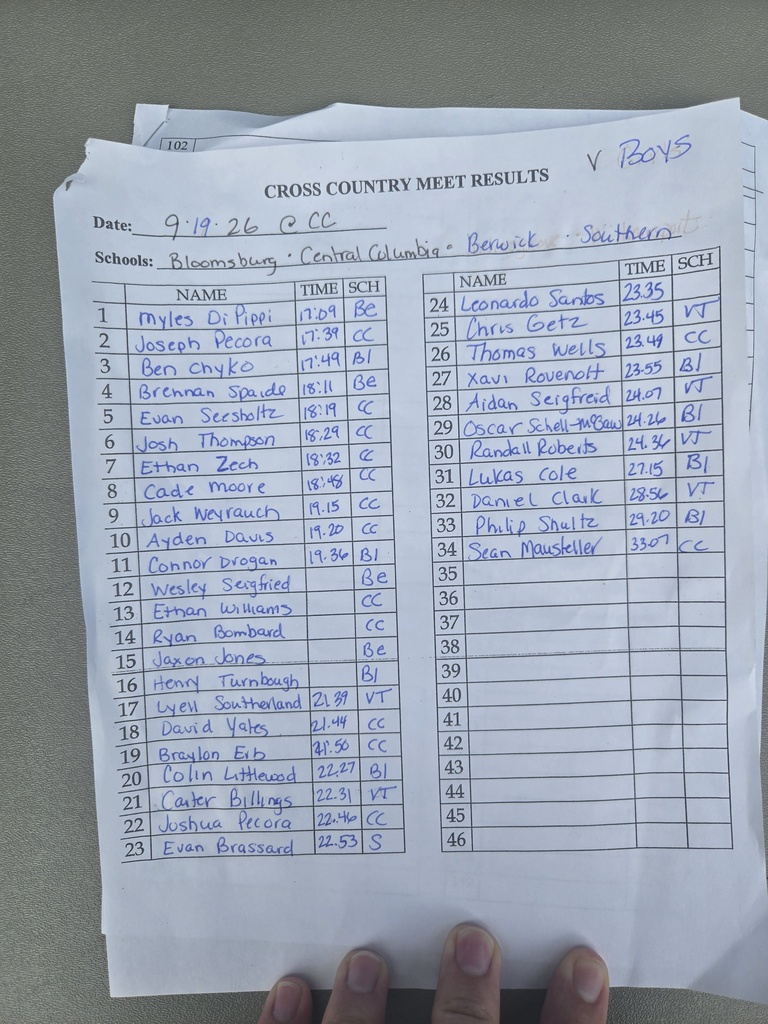 102
V Boys
CROSS COUNTRY MEET RESULTS
Date: 9.19.26 @ CC
Schools: Bloomsburg · Central Columbia · Berwick · Southern
NAME TIME SCH
1 Myles DiPippi 17:09 Be
2 Joseph Pecora 17:39 CC
3 Ben Chyko 17:49 Bl
4 Brennan Spaide 18:11 Be
5 Evan Seesholtz 18:19 CC
6 Josh Thompson 18:29 CC
7 Ethan Zech 18:32 CC
8 Cade Moore 18:48 CC
9 Jack Weyrauch 19.15 CC
10 Ayden Davis 19.20 CC
11 Connor Drogan 19.36 Bl
12 Wesley Seigfried Be
13 Ethan Williams CC
14 Ryan Bombard CC
15 Jaxon Jones Be
16 Henry Turnbough Bl
17 Lyell Southerland 21.39 VT
18 David Yates 21.44 CC
19 Braylon Erb 21.50 CC
20 Colin Littlewood 22.27 Bl
21 Carter Billings 22.31 VT
22 Joshua Pecora 22.46 CC
23 Evan Brassard 22.53 S
NAME TIME SCH
24 Leonardo Santos 23.35
25 Chris Getz 23.45 VT
26 Thomas Wells 23.49 CC
27 Xavi Rovenolt 23.55 Bl
28 Aidan Seigfreid 24.07 VT
29 Oscar Schell-McGaw 24.26 Bl
30 Randall Roberts 24.36 VT
31 Lukas Cole 27.15 Bl
32 Daniel Clark 28.56 VT
33 Philip Shultz 29.20 Bl
34 Sean Mausteller 33.07 CC
35
36
37
38
39
40
41
42
43
44
45
46